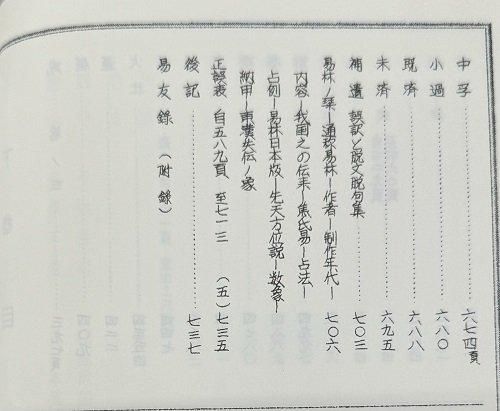 中孚……………六七四頁
小過……………六八〇
既済……………六八八
未済……………六九五
補遺 誤訳と脱文脱句集……七〇三
易林ノ栞―通称易林―作者―制作年代―七〇六
内容―我国之の伝来―焦氏易―占法―
占例―易林日本版―先天方位説―数象―
納甲―東漢失伝ノ象
正誤表 自五八九頁 至七一三 (五)七三五
後記……………七三七
易友録(附録)